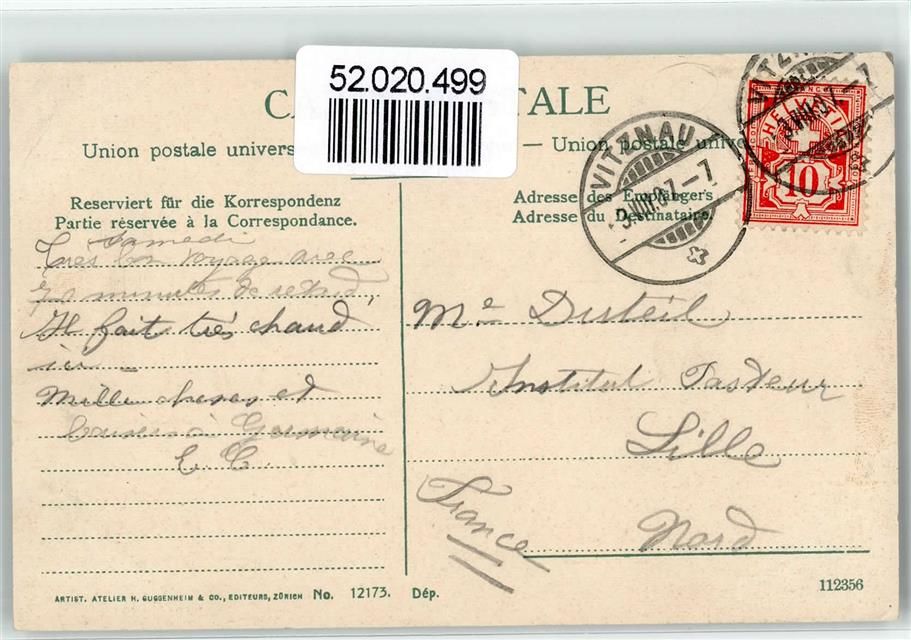 52.020.499
CA TALE
Union postale univers — Union postale unive
Reserviert für die Korrespondenz
Partie réservée à la Correspondance.
Adresse des Empfängers
Adresse du Destinataire.
VITZNAU
VIII.07-7
VITZNAU
HELVETIA
10
Samedi
Très bon voyage avec
minutes de retard,
Il fait très chaud
ici —
Mille choses et
baisers à Germaine
Me Disteil
Institut Pasteur
Lille
Nord
France
ARTIST. ATELIER H. GUGGENHEIM & CO., EDITEURS, ZÜRICH No. 12173. Dép.
112356